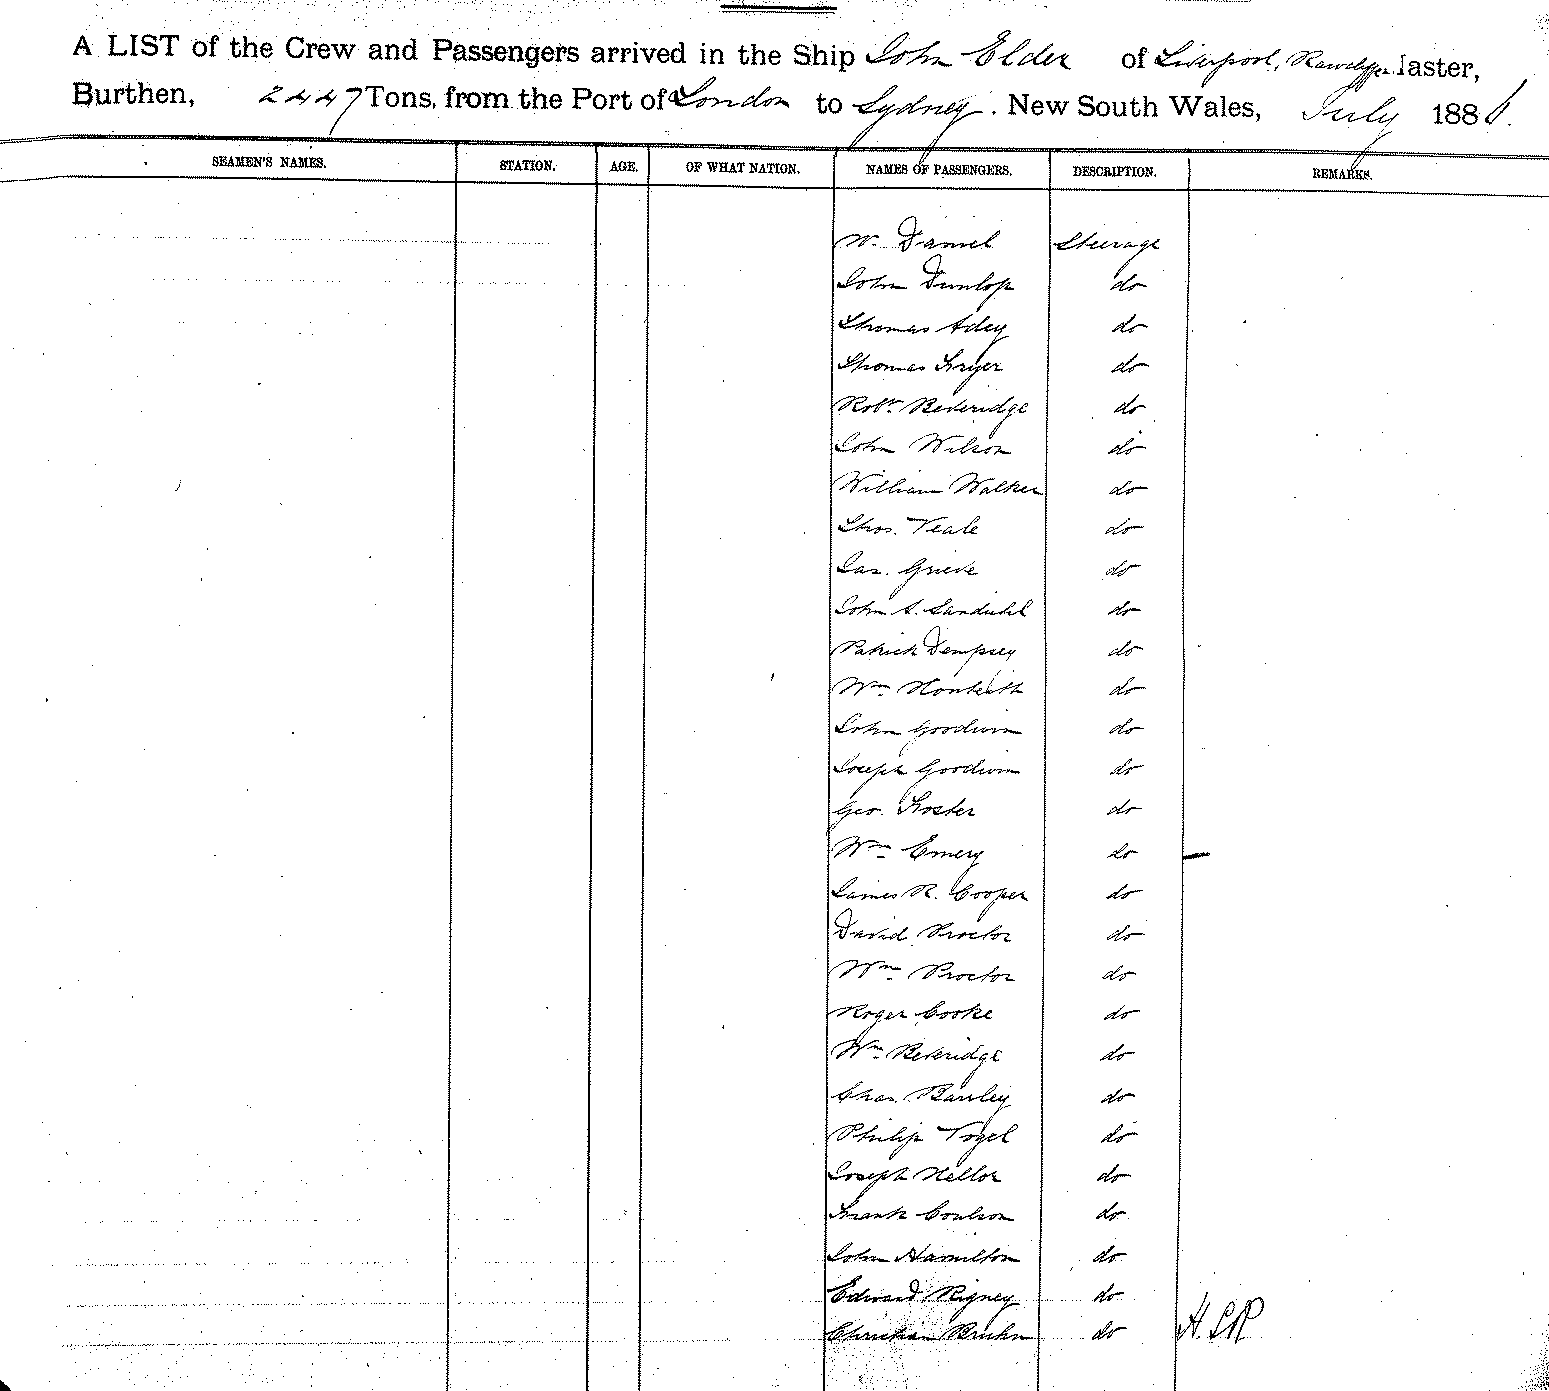 A LIST of the Crew and Passengers arrived in the Ship John Elder of Liverpool, Master,
Burthen, 2447 Tons, from the Port of London to Sydney. New South Wales, July 1886.
SEAMEN'S NAMES. STATION. AGE. OF WHAT NATION. NAMES OF PASSENGERS. DESCRIPTION. REMARKS.
W. Daniel Steerage
John Dunlop do
Thomas Adey do
Thomas Fryer do
Robt. Beveridge do
John Wilson do
William Walker do
Thos. Veale do
Jas. Grieve do
John S. do
Patrick Dempsey do
Wm Monteith do
John Goodwin do
Joseph Goodwin do
Geo. Foster do
Wm Emery do
James R. Cooper do
David Proctor do
Wm Proctor do
Roger Cooke do
Wm Beveridge do
Chas. do
Philip Vogel do
Joseph Mellor do
Frank Coulson do
John Hamilton do
Edward Rigney do
Christian do